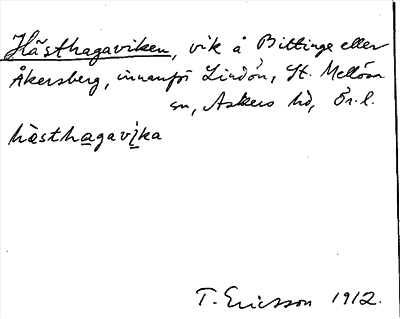 Hästhagaviken, vik å Bittinge eller
Åkersberg, innanför Lindön, St. Mellösa
sn, Askers hd, Ör. l.
hästhagavika
T. Ericsson 1912.